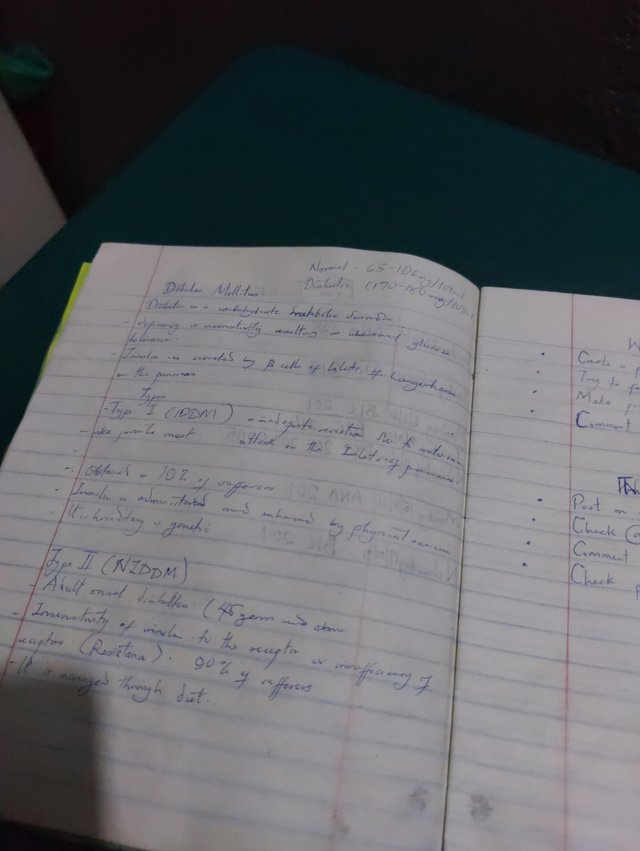 Normal - 65-106 mg/100ml
Diabetic (170-180 mg/100ml
Diabetes Mellitus
Diabetes is a carbohydrate metabolic disorder
- deficiency or insensitivity resulting in abnormal glucose
tolerance
- Insulin is secreted by β cells of Islets of Langerhans
in the pancreas
Types
- Type I (IDDM) - inadequate secretion due to autoimmune
attack on the Islets of pancreas
- aka juvenile onset.
- Obtained in 10% of sufferers
- Insulin is administered and enhanced by physical exercise
- It is hereditary or genetic
Type II (NIDDM)
- Adult onset diabetes (45 years and above
- Insensitivity of insulin to the receptor or insufficiency of
receptors (Resistance). 90% of sufferers.
- It is managed through diet.
W
Create a
Try to
Make
Comment
Post on
Check
Comment
Check